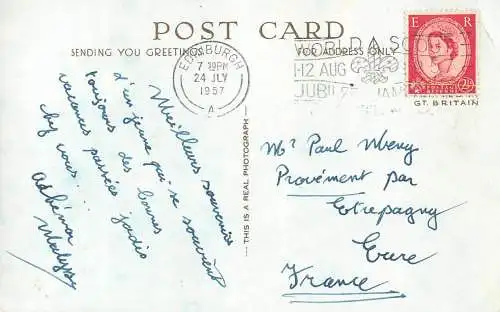 POST CARD
SENDING YOU GREETINGS
FOR ADDRESS ONLY
EDINBURGH
7 15PM
24 JLY
1957
A
WORLD SCOUT
1-12 AUG
JUBILEE JAM
E R
POSTAGE REVENUE
2½D
GT. BRITAIN
Meilleurs souvenirs
d'un jeune qui se souvient
toujours des bonnes
vacances passées jadis
chez vous...
Adhémar
THIS IS A REAL PHOTOGRAPH
Mr Paul
Provémont par
Etrepagny
Eure
France